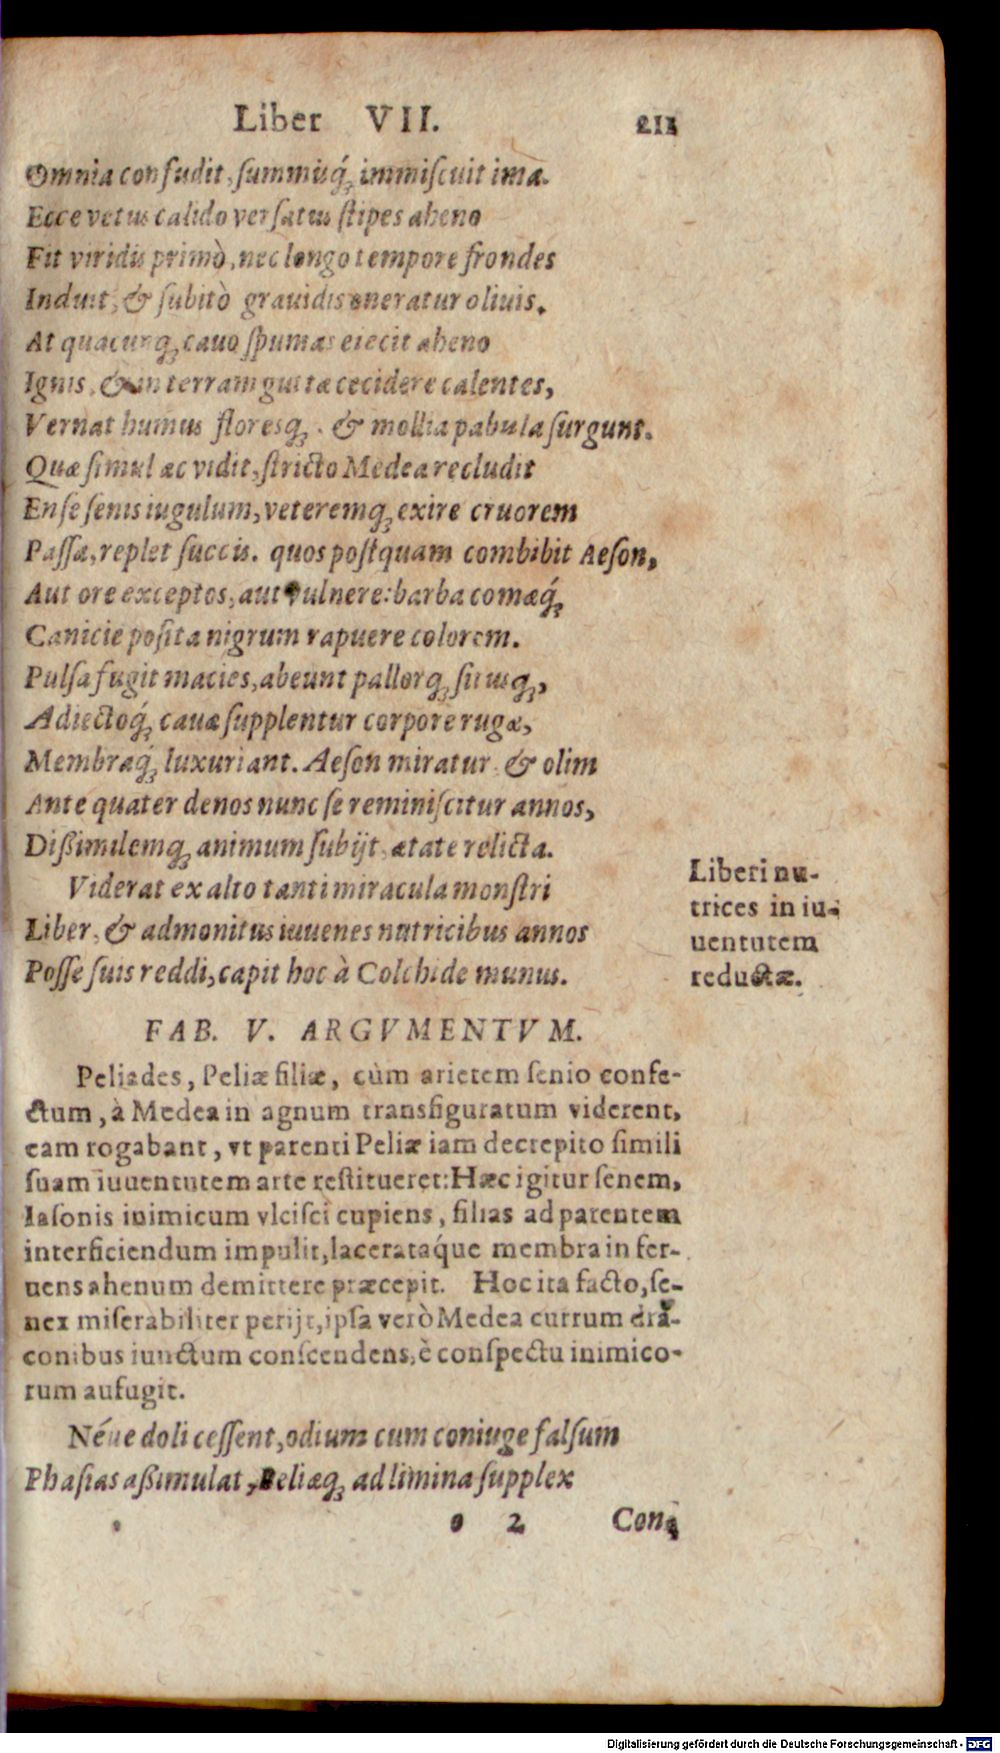 Liber VII. 211
Omnia confudit, summisq́; immiscuit ima.
Ecce vetus calido versatus stipes aheno
Fit viridis primò, nec longo tempore frondes
Induit, & subitò grauidis oneratur oliuis.
At quacunq; cauo spumas eiecit aheno
Ignis, & in terram guttæ cecidere calentes,
Vernat humus floresq; . & mollia pabula surgunt.
Quæ simul ac vidit, stricto Medea recludit
Ense senis iugulum, veteremq; exire cruorem
Passa, replet succis. quos postquam combibit Aeson,
Aut ore exceptos, aut vulnere: barba comæq́;
Canicie posita nigrum rapuere colorem.
Pulsa fugit macies, abeunt pallorq; situsq;,
Adiectoq́; cauæ supplentur corpore rugæ,
Membraq́; luxuriant. Aeson miratur, & olim
Ante quater denos nunc se reminiscitur annos,
Dißimilemq; animum subijt, ætate relicta.
Viderat ex alto tanti miracula monstri
Liber, & admonitus iuuenes nutricibus annos
Posse suis reddi, capit hoc à Colchide munus.
Liberi nu-
trices in iu-
uentutem
reductæ.
FAB. V. ARGVMENTVM.
Peliades, Peliæ filiæ, cùm arietem senio confe-
ctum, à Medea in agnum transfiguratum viderent,
eam rogabant, vt parenti Peliæ iam decrepito simili
suam iuuentutem arte restitueret: Hæc igitur senem,
Iasonis inimicum vlcisci cupiens, filias ad parentem
interficiendum impulit, laceratáque membra in fer-
uens ahenum demittere præcepit. Hoc ita facto, se-
nex miserabiliter perijt, ipsa verò Medea currum dra-
conibus iunctum conscendens, è conspectu inimico-
rum aufugit.
Néue doli cessent, odium cum coniuge falsum
Phasias aßimulat, Peliæq; ad limina supplex
o 2 Con-
Digitalisierung gefördert durch die Deutsche Forschungsgemeinschaft - DFG